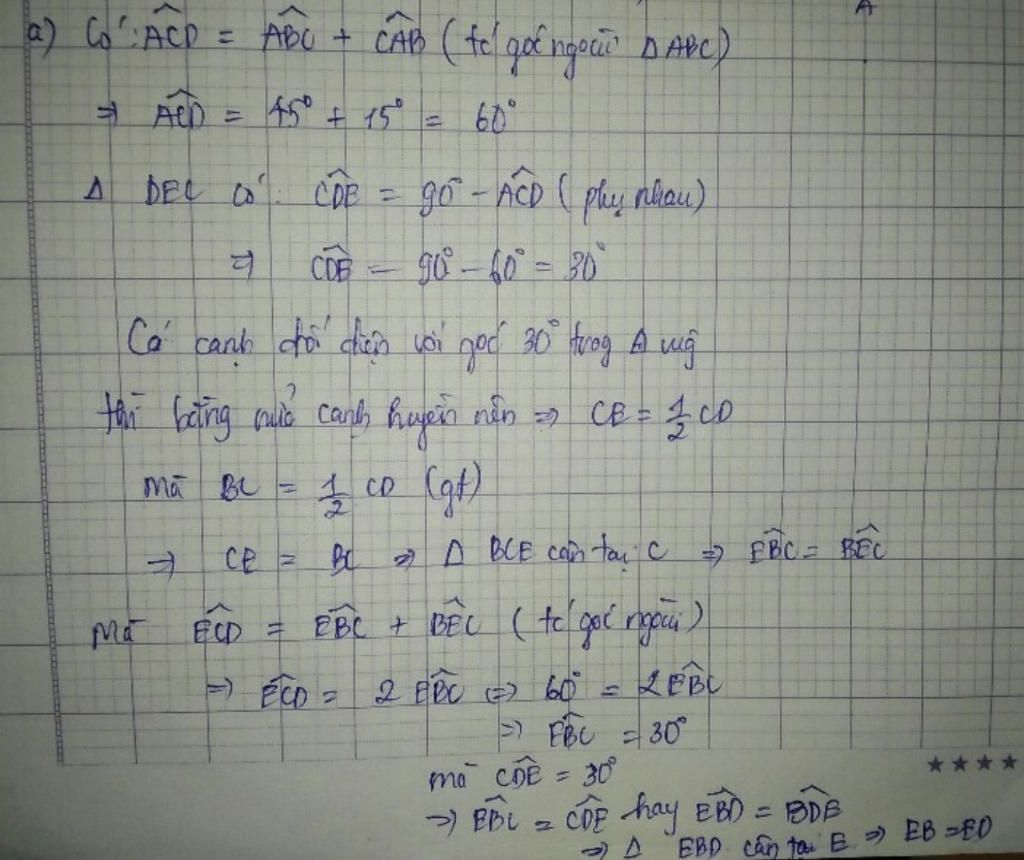 A
a) Có: ACD = ABC + CAB (tc góc ngoài Δ ABC)
⇒ ACD = 45° + 15° = 60°
Δ DEC có: CDE = 90° - ACD (phụ nhau)
⇒ CDE = 90° - 60° = 30°
Có cạnh đối diện với góc 30° trog Δ vug
thì bằng nửa cạnh huyền nên ⇒ CE = 1/2 CD
mà BC = 1/2 CD (gt)
⇒ CE = BC ⇒ Δ BCE cân tại C ⇒ EBC = BEC
mà ECD = EBC + BEC (tc góc ngoài)
⇒ ECD = 2 EBC ⇔ 60° = 2EBC
⇒ EBC = 30°
mà CDE = 30°
⇒ EBC = CDE hay EBD = BDE
⇒ Δ EBD cân tại E ⇒ EB = ED